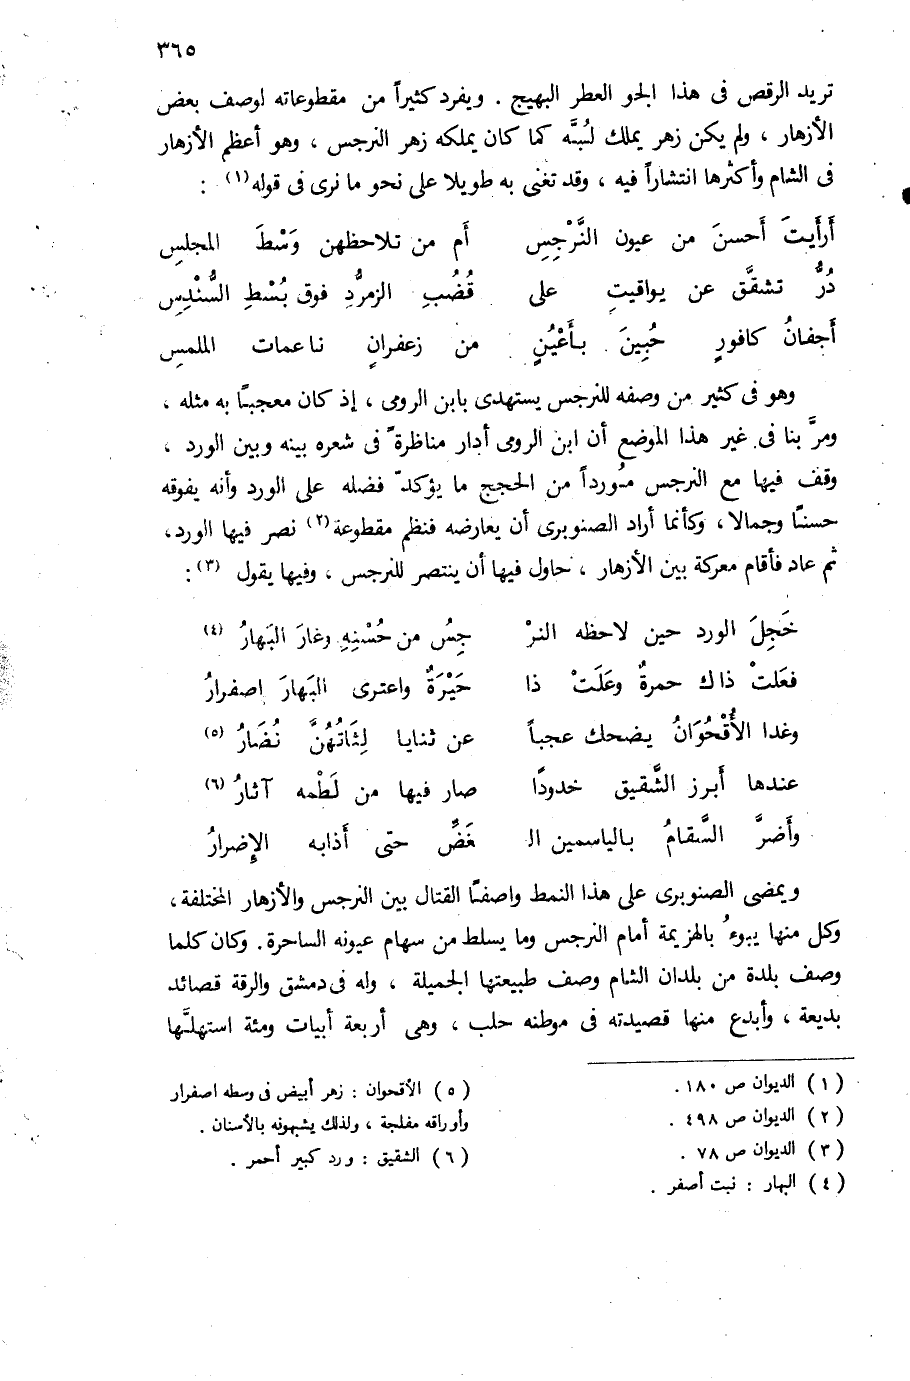 ٣٦٥
تريد الرقص فى هذا الجو العطر البهيج . ويفرد كثيراً من مقطوعاته لوصف بعض
الأزهار ، ولم يكن زهر يملك لُبَّه كما كان يملكه زهر النرجس ، وهو أعظم الأزهار
فى الشام وأكثرها انتشاراً فيه ، وقد تغنى به طويلا على نحو ما نرى فى قوله (١) :
أَرأَيتَ أَحسنَ من عيون النَّرْجِسِ أَم من تلاحظهن وَسْطَ المجلسِ
دُرٌّ تشقَّق عن يواقيتٍ على قُضُبِ الزمرُّدِ فوق بُسْطِ السُّنْدِسِ
أَجفانُ كافورٍ حُبِينَ بأَعْيُنٍ من زعفرانٍ ناعمات الملمسِ
وهو فى كثير من وصفه للنرجس يستهدى بابن الرومى ، إذ كان معجبًا به مثله ،
ومرَّ بنا فى غير هذا الموضع أن ابن الرومى أدار مناظرة فى شعره بينه وبين الورد ،
وقف فيها مع النرجس مُورداً من الحجج ما يؤكد فضله على الورد وأنه يفوقه
حسنًا وجمالا ، وكأنما أراد الصنوبرى أن يعارضه فنظم مقطوعة (٢) نصر فيها الورد،
ثم عاد فأقام معركة بين الأزهار ، حاول فيها أن ينتصر للنرجس ، وفيها يقول (٣) :
خَجِلَ الورد حين لاحظه النرْ جِسُ من حُسْنِهِ وغارَ البَهارُ (٤)
فعَلتْ ذاك حمرةٌ وعَلَتْ ذا حَيْرَةٌ واعترى البَهارَ اصفرارُ
وغدا الأُقْحُوَانُ يضحك عجباً عن ثنايا لِثَاتُهُنَّ نُضَارُ (٥)
عندها أَبرز الشَّقيق خدودًا صار فيها من لَطْمه آثارُ (٦)
وأَضرَّ السَّقامُ بالياسمين الـ ـغَضِّ حتى أَذابه الإِضرارُ
ويمضى الصنوبرى على هذا النمط واصفًا القتال بين النرجس والأزهار المختلفة،
وكل منها يبوءُ بالهزيمة أمام النرجس وما يسلط من سهام عيونه الساحرة. وكان كلما
وصف بلدة من بلدان الشام وصف طبيعتها الجميلة ، وله فى دمشق والرقة قصائد
بديعة ، وأبدع منها قصيدته فى موطنه حلب ، وهى أربعة أبيات ومئة استهلَّها
(١) الديوان ص ١٨٠.
(٢) الديوان ص ٤٩٨ .
(٣) الديوان ص ٧٨ .
(٤) البهار : نبت أصفر .
(٥) الأقحوان : زهر أبيض فى وسطه اصفرار
وأوراقه مفلجة ، ولذلك يشبهونه بالأسنان .
(٦) الشقيق : ورد كبير أحمر .